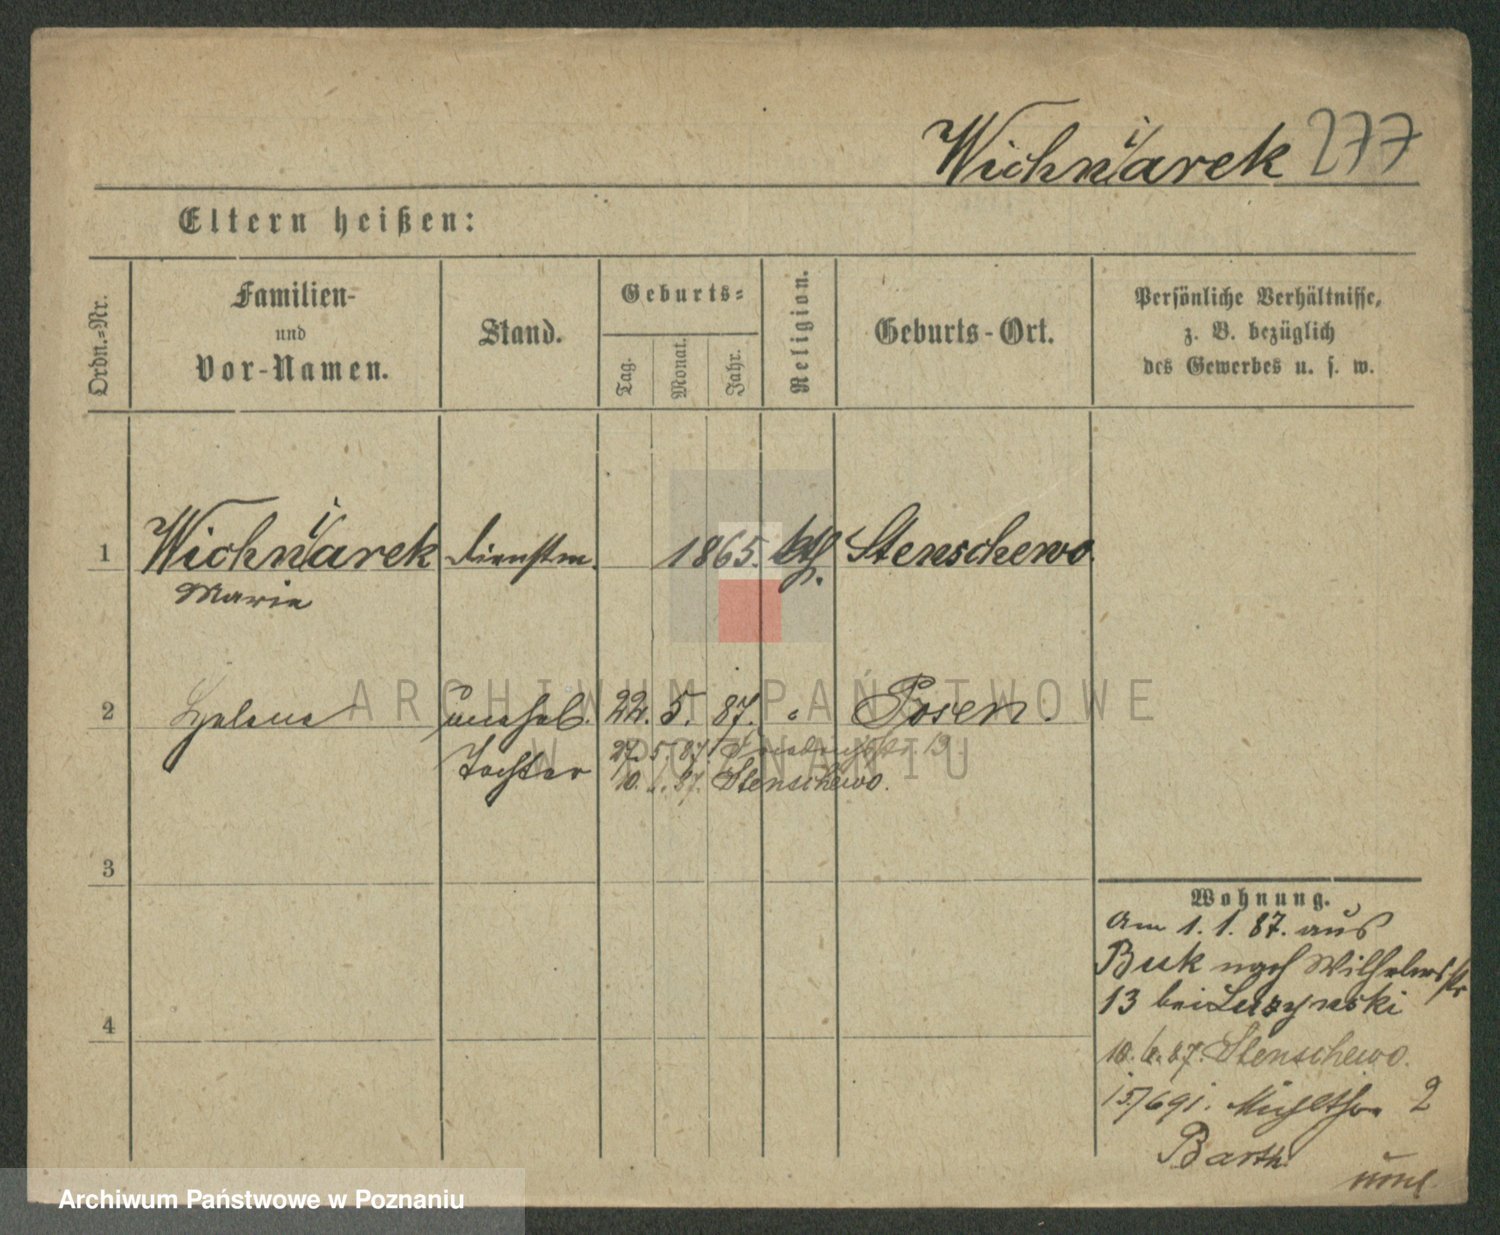 Wichniarek 277
Eltern heißen:
Ordn.=Nr.
Familien-
und
Vor-Namen.
Stand.
Geburts=
Tag.
Monat.
Jahr.
Religion.
Geburts-Ort.
Persönliche Verhältnisse,
z. B. bezüglich
des Gewerbes u. s. w.
1 Wichniarek Dienstm. 1865. kth. Stenschewo
Marie
2 Helene unehel. 22. 5. 87. " Posen.
Tochter 27. 5. 87. 13.
10. 87. Stenschewo.
3
4
Wohnung.
Am 1. 1. 87. aus
Buk nach Wilhelmsstr
13 bei Luszynski
10. 6. 87. Stenschewo.
15/6 91. Mühlthor 2
Barth
ARCHIWUM PAŃSTWOWE
W POZNANIU
Archiwum Państwowe w Poznaniu